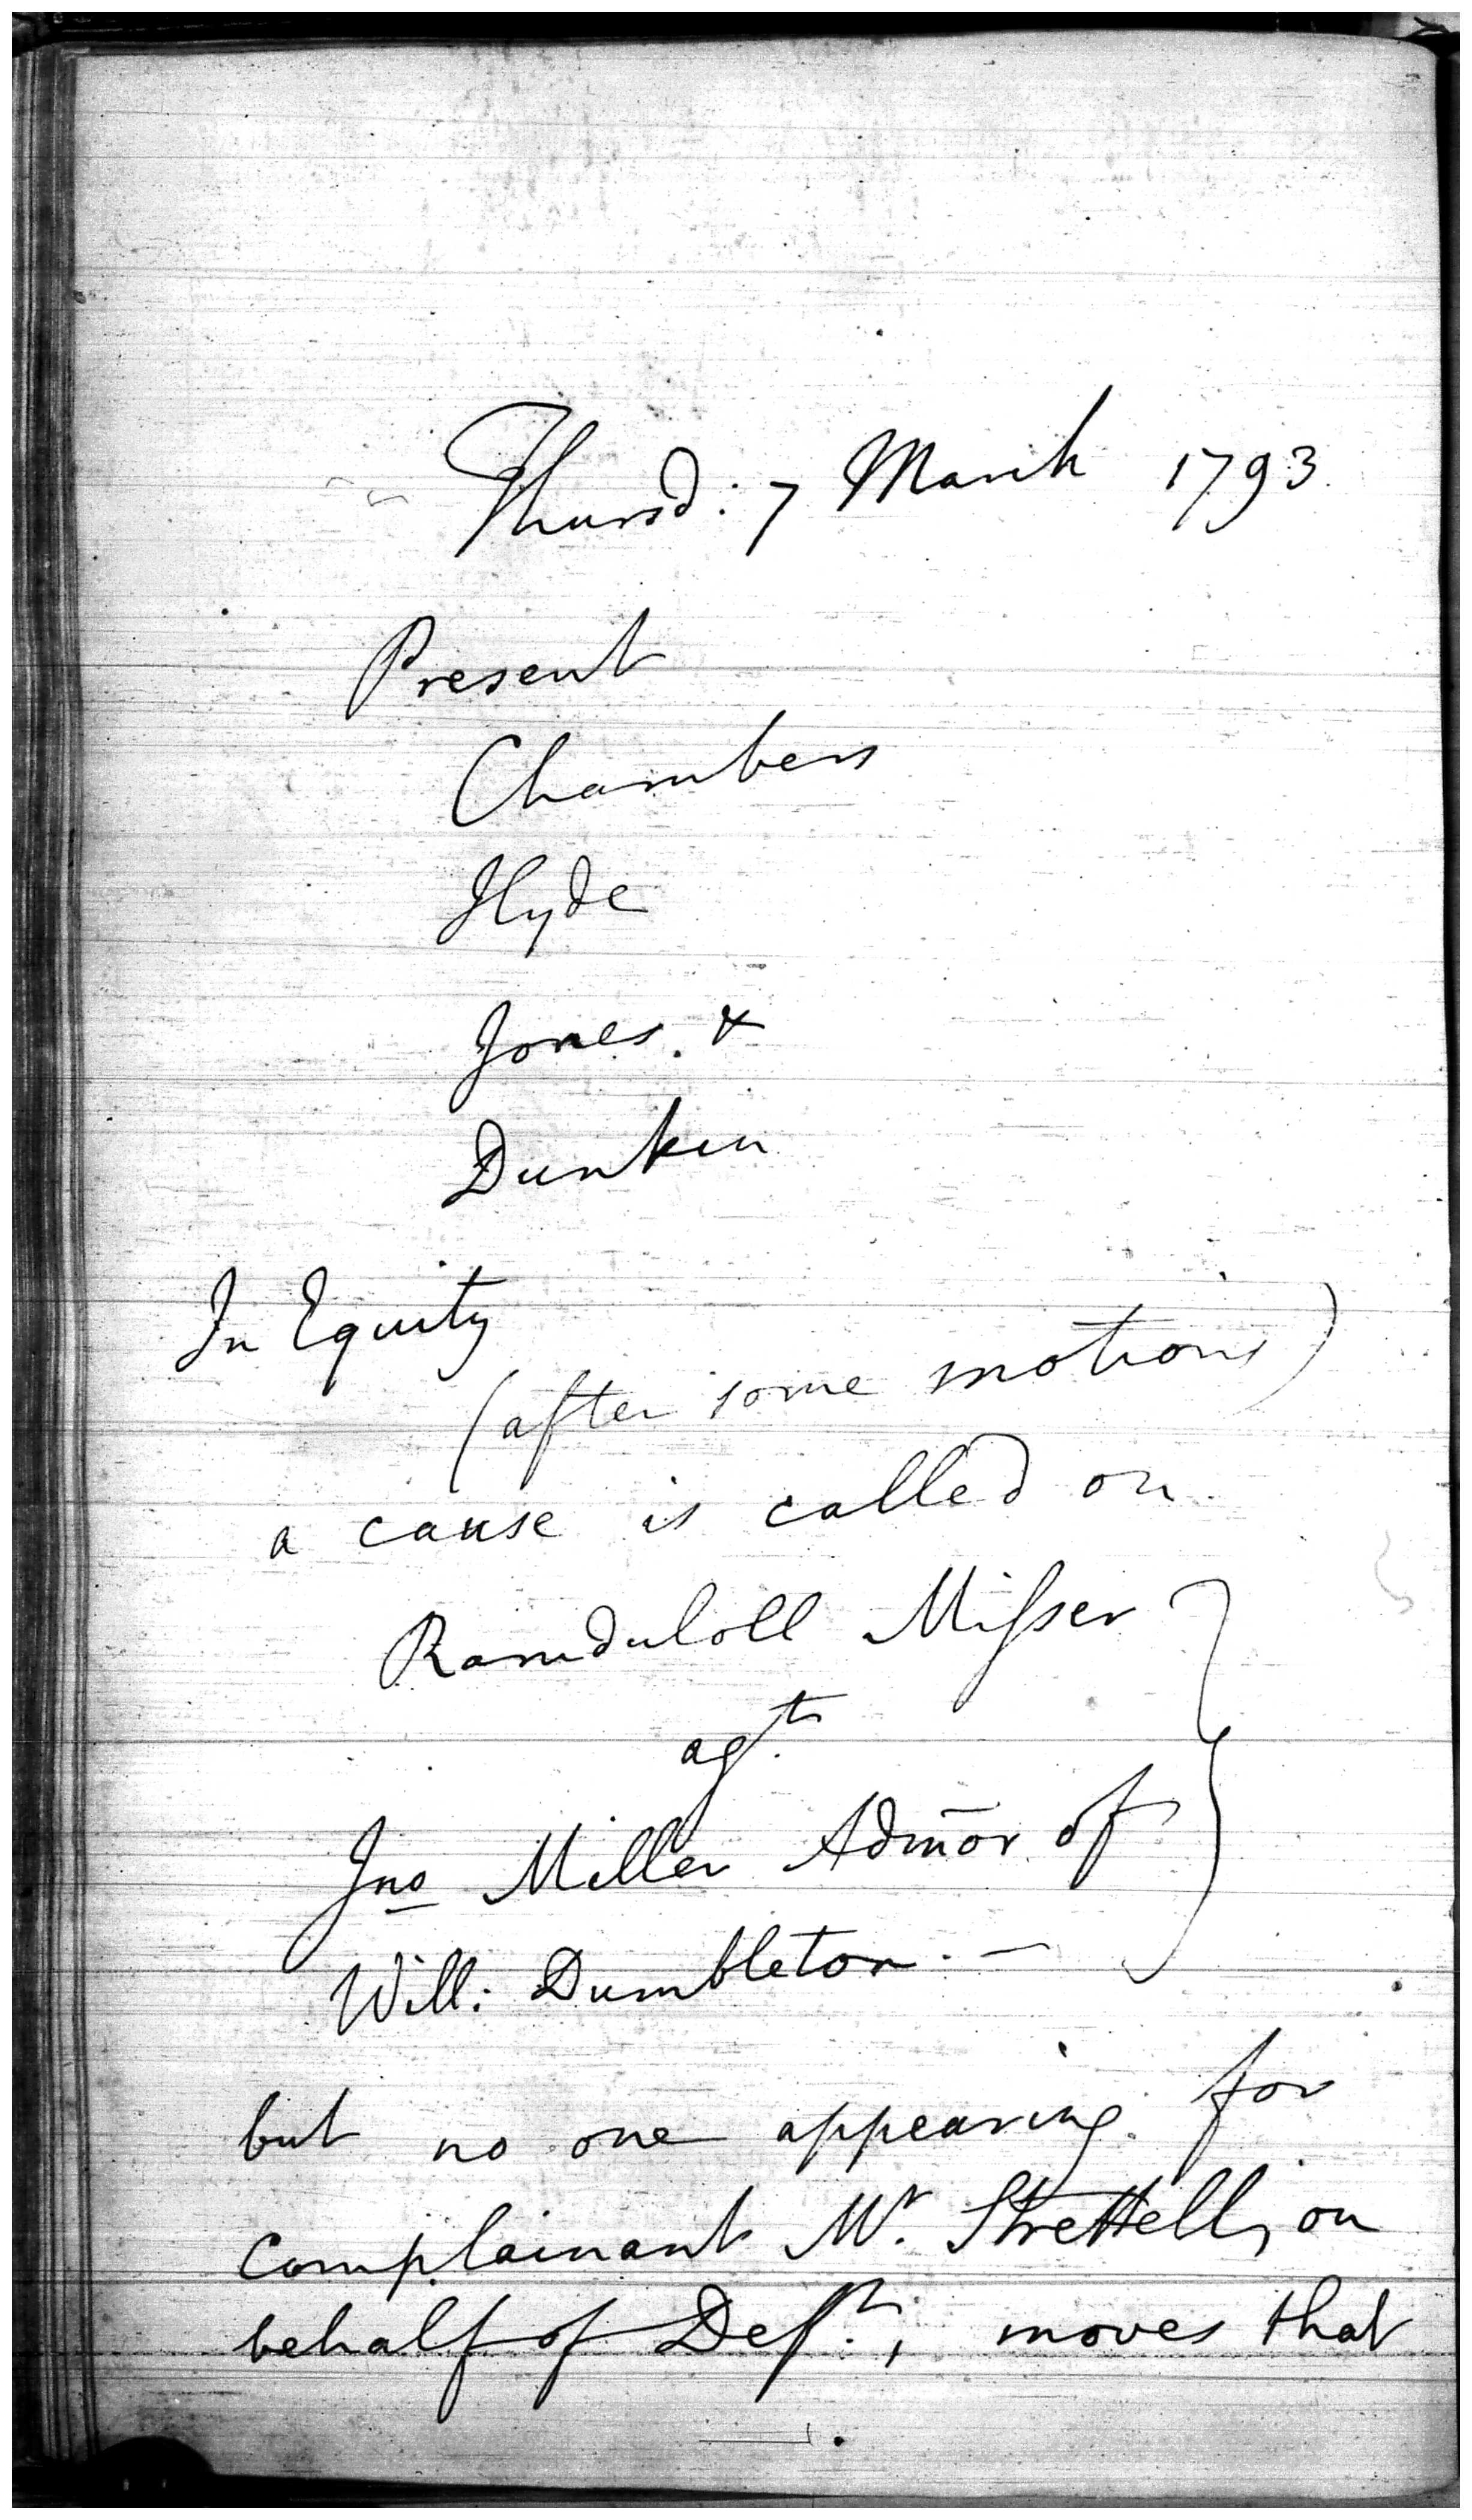 Thursd: 7 March 1793
Present
Chambers
Hyde
Jones. &
Dunkin
In Equity
(after some motions)
a cause is called on.
Ramduloll Misser
agt.
Jno Miller Admor of
Will: Dumbleton. —
but no one appearing for
Complainant Mr. Strettell, on
behalf of Deft., moves that